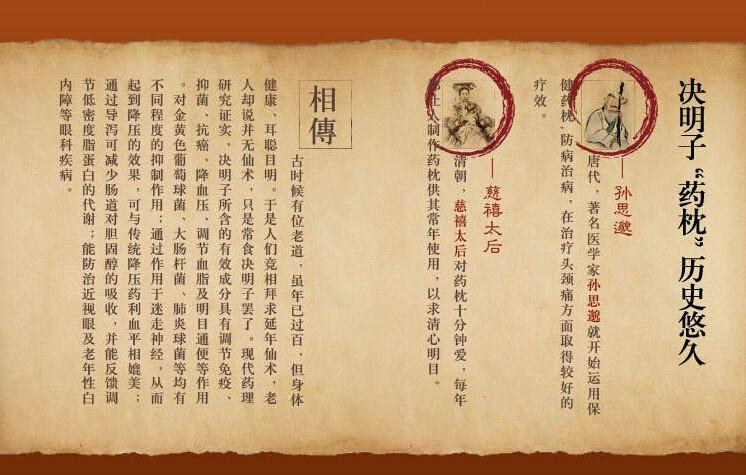 决明子“药枕”历史悠久
—孙思邈
唐代，著名医学家孙思邈就开始运用保
健药枕，防病治病，在治疗头颈痛方面取得较好的
疗效。
—慈禧太后
清朝，慈禧太后对药枕十分钟爱，每年
都让人制作药枕供其常年使用，以求清心明目。
相傳
古时候有位老道，虽年已过百，但身体
健康、耳聪目明。于是人们竞相拜求延年仙术，老
人却说并无仙术，只是常食决明子罢了。现代药理
研究证实，决明子所含的有效成分具有调节免疫、
抑菌、抗癌、降血压、调节血脂及明目通便等作用
。对金黄色葡萄球菌、大肠杆菌、肺炎球菌等均有
不同程度的抑制作用；通过作用于迷走神经，从而
起到降压的效果，可与传统降压药利血平相媲美；
通过导泻可减少肠道对胆固醇的吸收，并能反馈调
节低密度脂蛋白的代谢；能防治近视眼及老年性白
内障等眼科疾病。